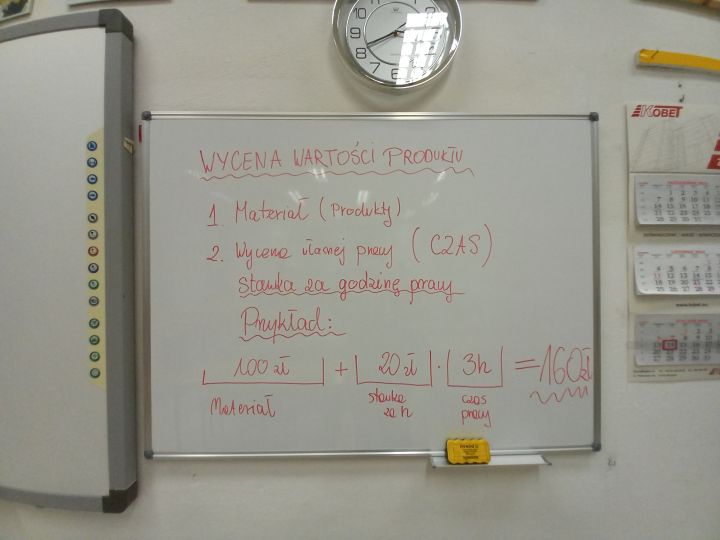 WYCENA WARTOŚCI PRODUKTU
1. Materiał (Produkty)
2. Wycena własnej pracy (CZAS)
stawka za godzinę pracy
Przykład:
100 zł + 20 zł · 3h = 160zł
Materiał
stawka
za h
czas
pracy
KOBET